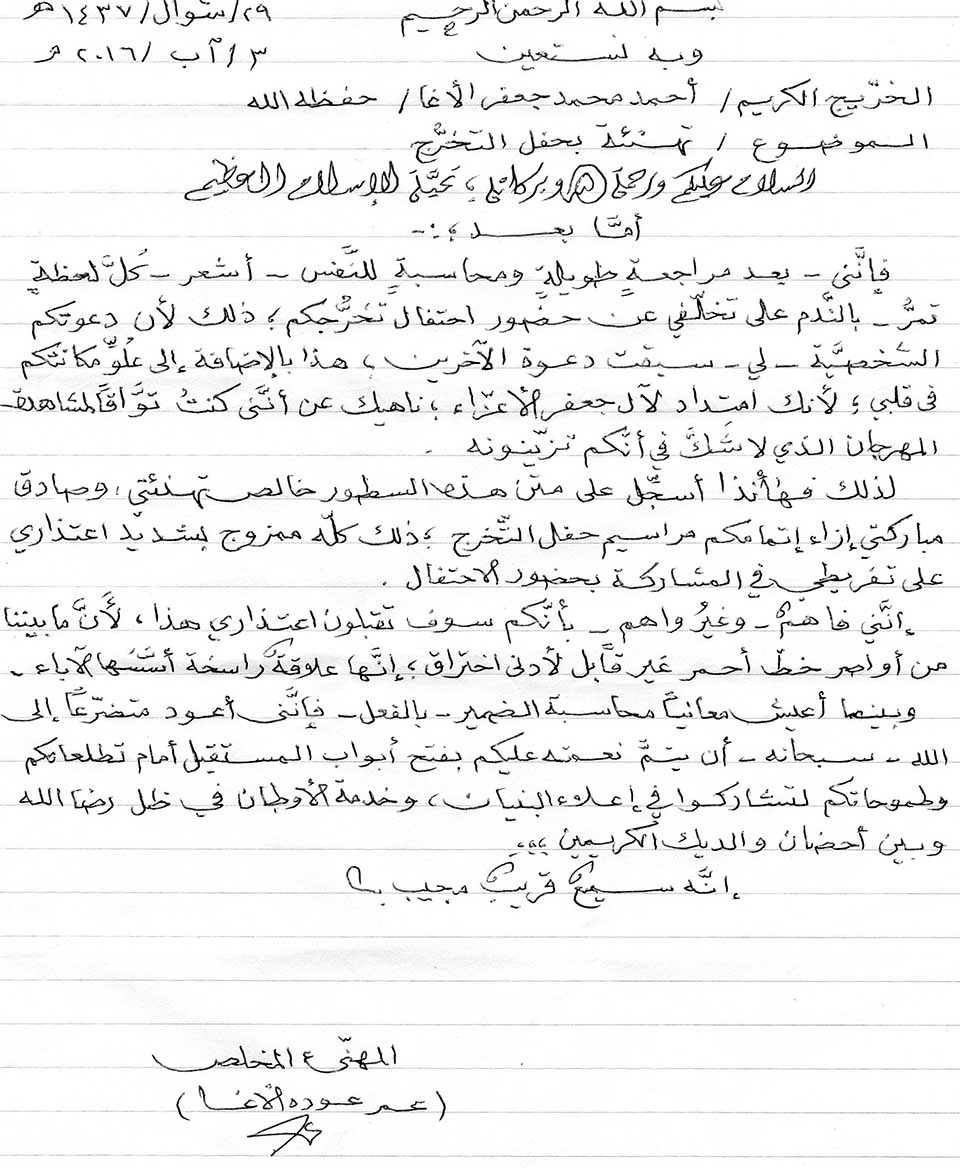 بسم الله الرحمن الرحيم ٢٩/شوال/١٤٣٧هـ
وبه نستعين ٣/آب/٢٠١٦م
الخرّيج الكريم/ أحمد محمد جعفر الأغا/ حفظه الله
الموضوع / تهنئة بحفل التخرُّج
السلام عليكم ورحمة الله وبركاته ؛ تحيَّة الإسلام العظيم
أمَّا بعـــد ؛:-
فإنَّني - بعد مراجعةٍ طويلةٍ ومحاسبةٍ للنَّفس - أشعر - كُلَّ لحظةٍ
تمرُّ - بالنَّدم على تخلّفي عن حضور احتفال تخرُّجكم ؛ ذلك لأن دعوتكم
الشَّخصيَّة - لي - سبقت دعوة الآخرين ، هذا بالإضافة إلى عُلُوِّ مكانتكم
في قلبي ؛ لأنك امتداد لآل جعفر الأعزّاء ؛ ناهيك عن أنَّني كنتُ توَّاقاً لمشاهدة
المهرجان الذي لا شكَّ في أنَّكم تزيّنونه .
لذلك فهأنذا أسجّل على متن هذه السطور خالص تهنئتي ، وصادق
مباركتي إزاء إتمامكم مراسيم حفل التّخرج ؛ ذلك كلّه ممزوج بشديد اعتذاري
على تفريطي في المشاركة بحضور الاحتفال .
إنَّني فاهمٌ - وغيرُ واهم - بأنَّكم سوف تقبلون اعتذاري هذا ، لأنَّ ما بيننا
من أواصر خطّ أحمر غير قابل لأدنى اختراق ؛ إنَّها علاقةٌ راسخة أسَّسَها الآباء .
وبينما أعيش معانياً محاسبة الضمير - بالفعل - فإنَّني أعود متضرّعاً إلى
الله - سبحانه - أن يتمَّ نعمته عليكم بفتح أبواب المستقبل أمام تطلعاتكم
وطموحاتكم لتشاركوا في إعلاء البنيان ، وخدمة الأوطان في ظل رضا الله
وبين أحضان والديك الكريمين ،،،
إنَّه سميعٌ قريبٌ مجيب
المهنّئ المخلص
(عمر عوده الأغا)